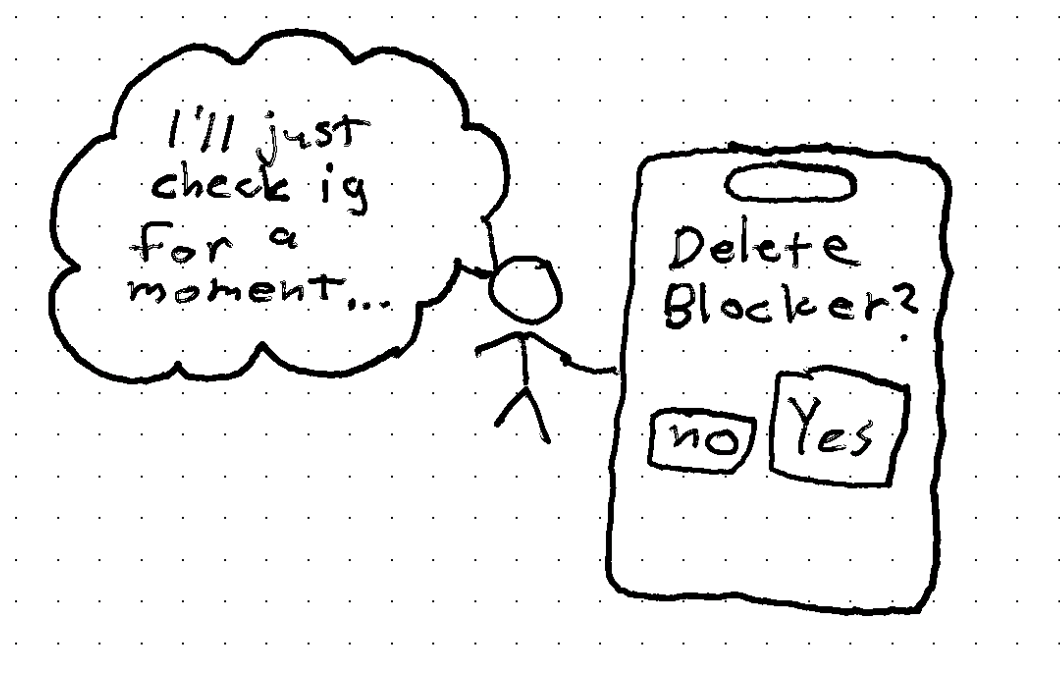 I'll just
check ig
for a
moment...
Delete
Blocker?
no
Yes